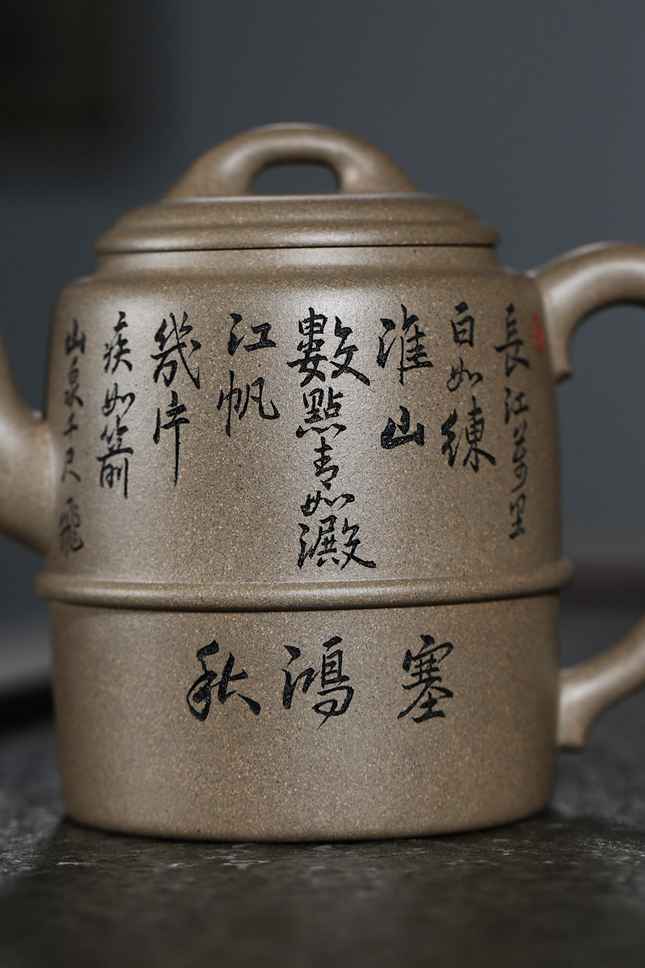 長江萬里
白如練
淮山
數點青如澱
江帆
幾片
疾如箭
山泉千尺飛
塞鴻秋